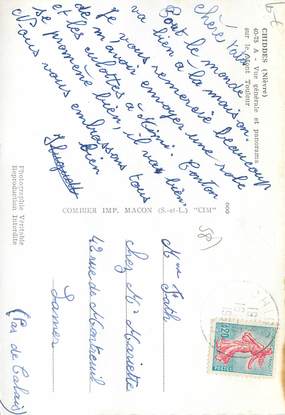 CHIDDES (Nièvre)
40-75 A - Vue générale et panorama
sur le Mont Touleur
Tout le monde
va bien à la maison.
Je vous remercie beaucoup
de m'avoir envoyer une robe
et les culottes à Rémi. Tonton
se promène bien, il va bien.
Nous vous embrassons tous
bien
Huguette
Photographie Véritable
Reproduction Interdite
COMBIER IMP. MACON (S.-et-L.) "CIM"
Mme Fath
chez Mr Mariette
42 rue de Montreuil
(Pas de Calais)
0,20
POSTES